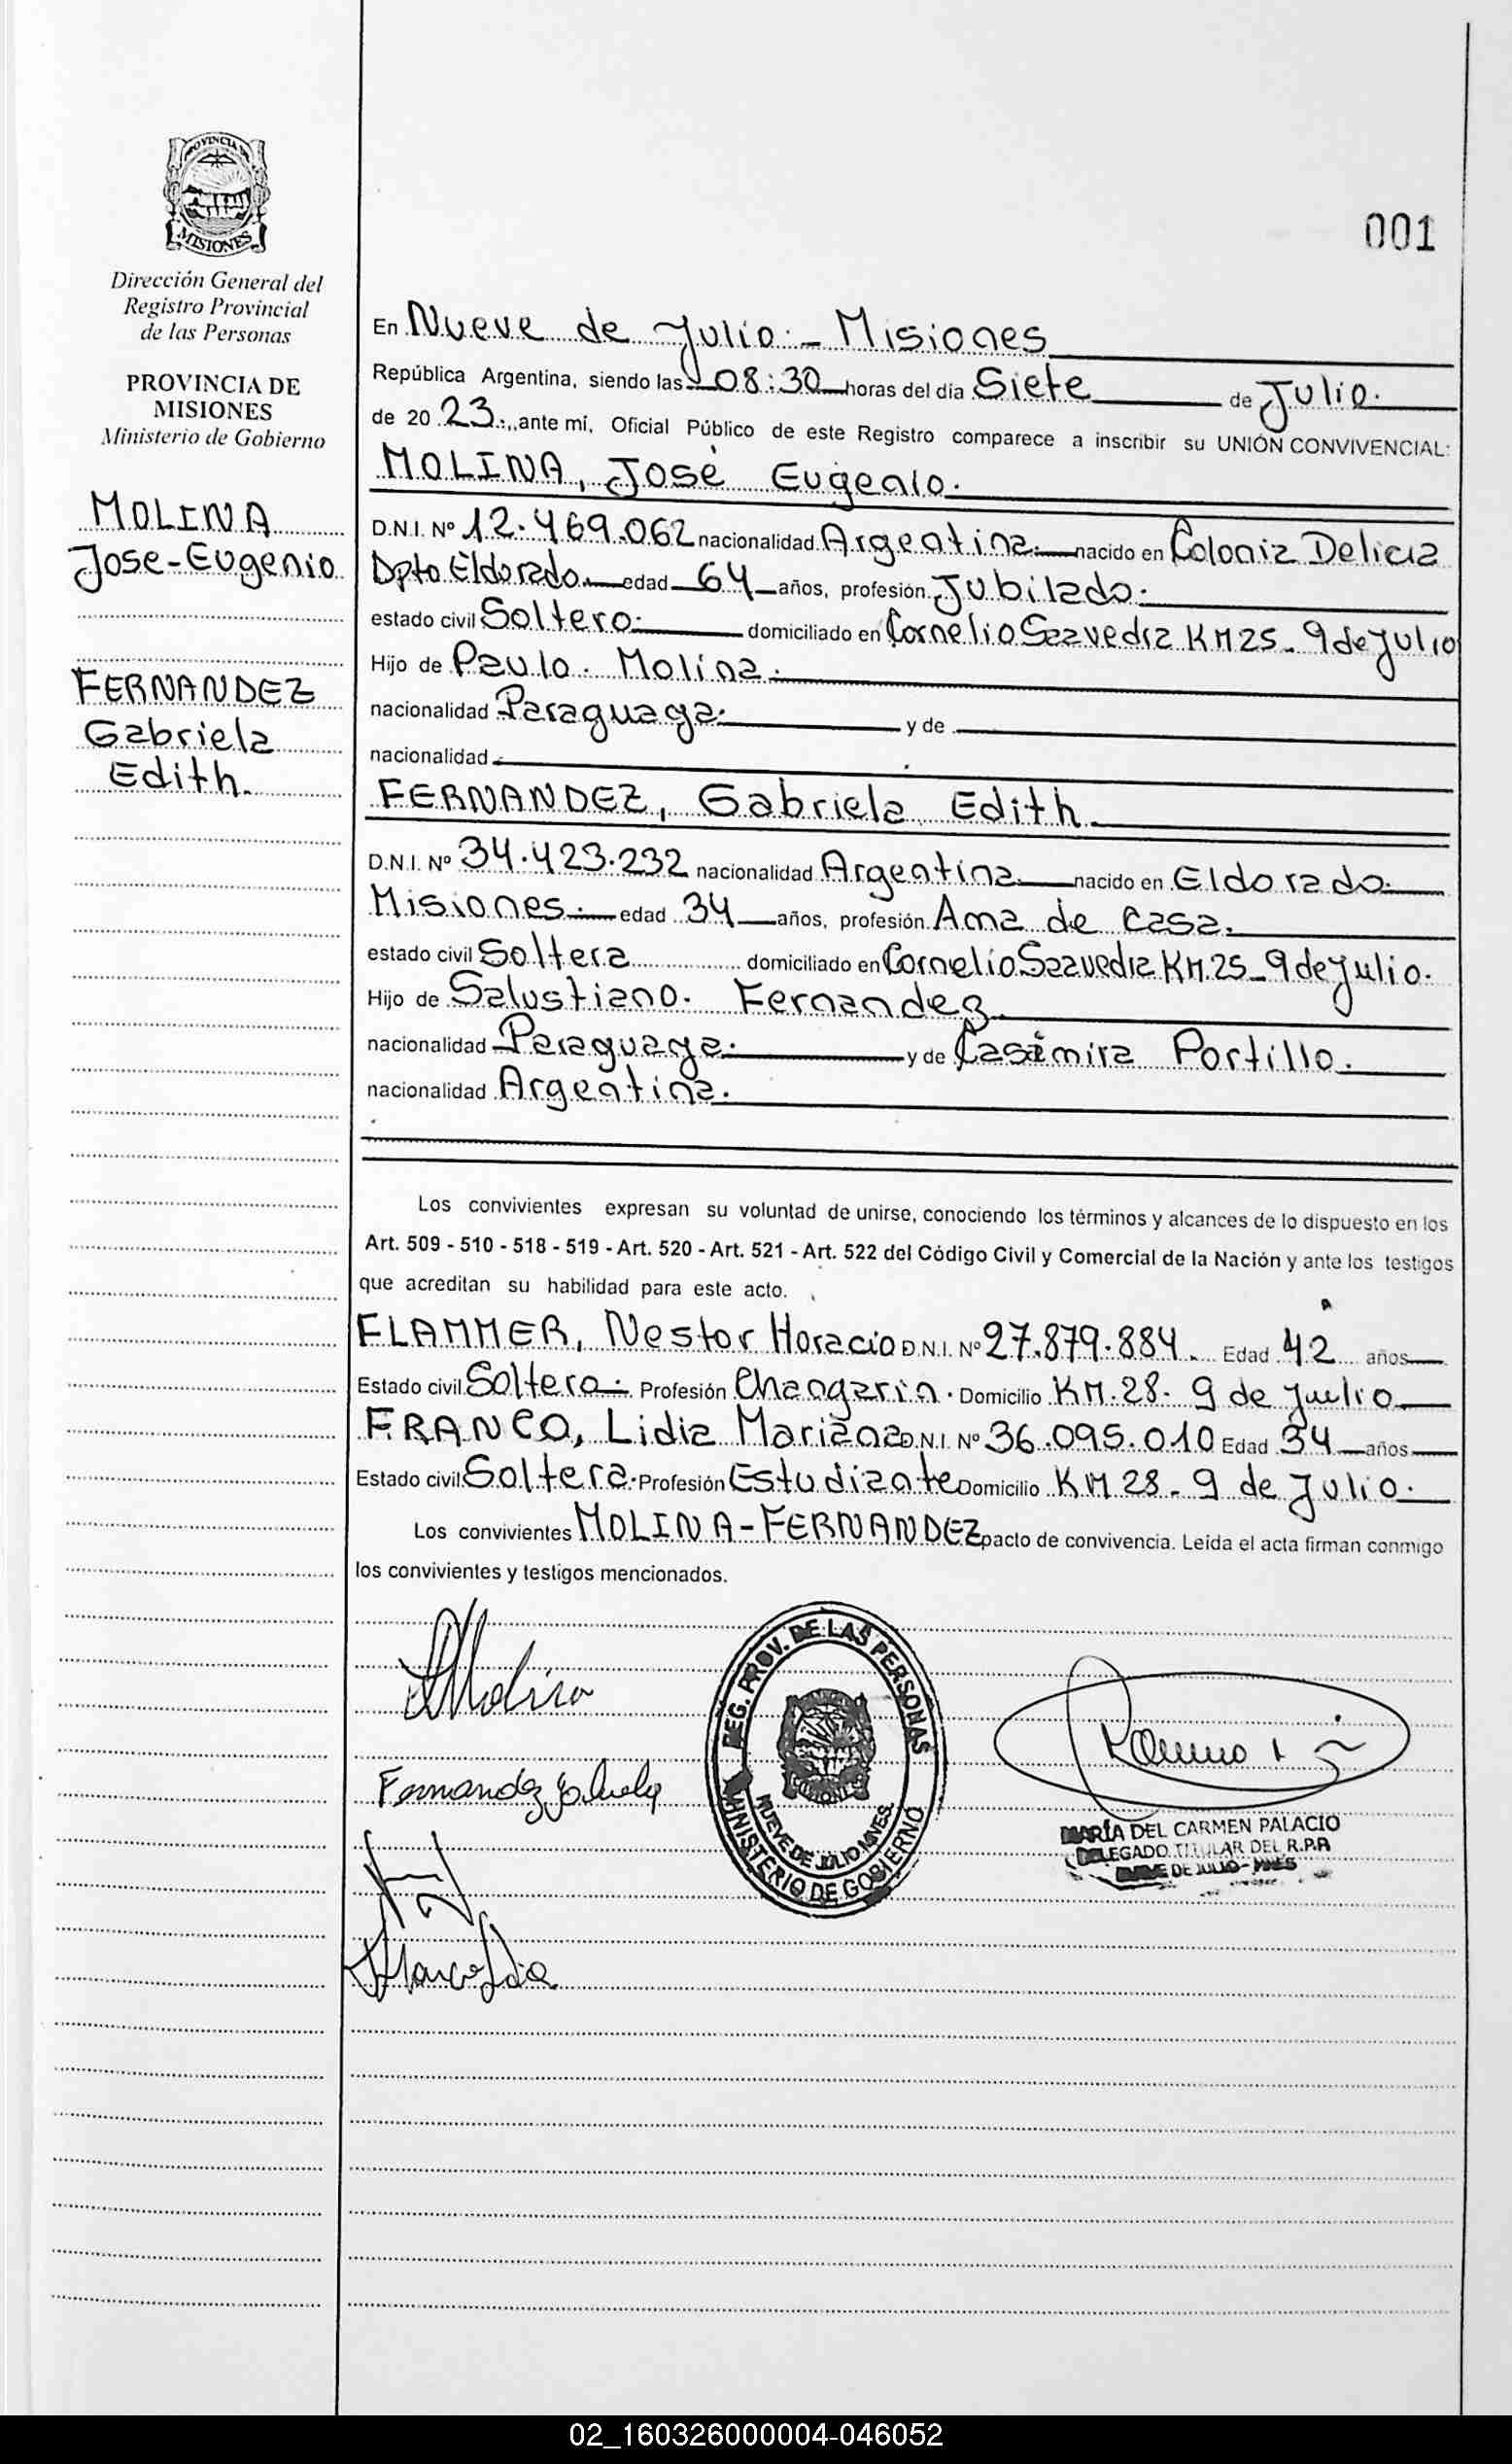 PROVINCIA DE
MISIONES
Dirección General del
Registro Provincial
de las Personas
PROVINCIA DE
MISIONES
Ministerio de Gobierno
MOLINA
Jose-Eugenio
FERNANDEZ
Gabriela
Edith.
001
En Nueve de Julio.- Misiones
República Argentina, siendo las 08:30 horas del día Siete de Julio.
de 20 23., ante mí, Oficial Público de este Registro comparece a inscribir su UNIÓN CONVIVENCIAL:
MOLINA, José Eugenio.
D.N.I. Nº 12.469.062 nacionalidad Argentina. nacido en Colonia Delicia
Dpto Eldorado. edad 64 años, profesión Jubilado.
estado civil Soltero. domiciliado en Cornelio Saavedra KM25- 9 de Julio
Hijo de Paulo. Molina.
nacionalidad Paraguaya. y de
nacionalidad
FERNANDEZ, Gabriela Edith.
D.N.I. Nº 34.423.232 nacionalidad Argentina. nacido en Eldorado.
Misiones. edad 34 años, profesión Ama de casa.
estado civil Soltera domiciliado en Cornelio Saavedra KM.25- 9 de Julio.
Hijo de Salustiano. Fernandez.
nacionalidad Paraguaya. y de Casimira Portillo.
nacionalidad Argentina.
Los convivientes expresan su voluntad de unirse, conociendo los términos y alcances de lo dispuesto en los
Art. 509 - 510 - 518 - 519 - Art. 520 - Art. 521 - Art. 522 del Código Civil y Comercial de la Nación y ante los testigos
que acreditan su habilidad para este acto.
FLAMMER, Nestor Horacio D.N.I. Nº 27.879.884. Edad 42 años
Estado civil Soltero. Profesión Changarin. Domicilio KM.28. 9 de Julio
FRANCO, Lidia Mariana D.N.I. Nº 36.095.010 Edad 34 años
Estado civil Soltera. Profesión Estudiante Domicilio KM 28- 9 de Julio.
Los convivientes MOLINA-FERNANDEZ pacto de convivencia. Leída el acta firman conmigo
los convivientes y testigos mencionados.
Molina
REG. PROV. DE LAS PERSONAS
MINISTERIO DE GOBIERNO
NUEVE DE JULIO MNES.
Fernandez
MARÍA DEL CARMEN PALACIO
DELEGADO TITULAR DEL R.P.P.
NUEVE DE JULIO - MNES
02_160326000004-046052